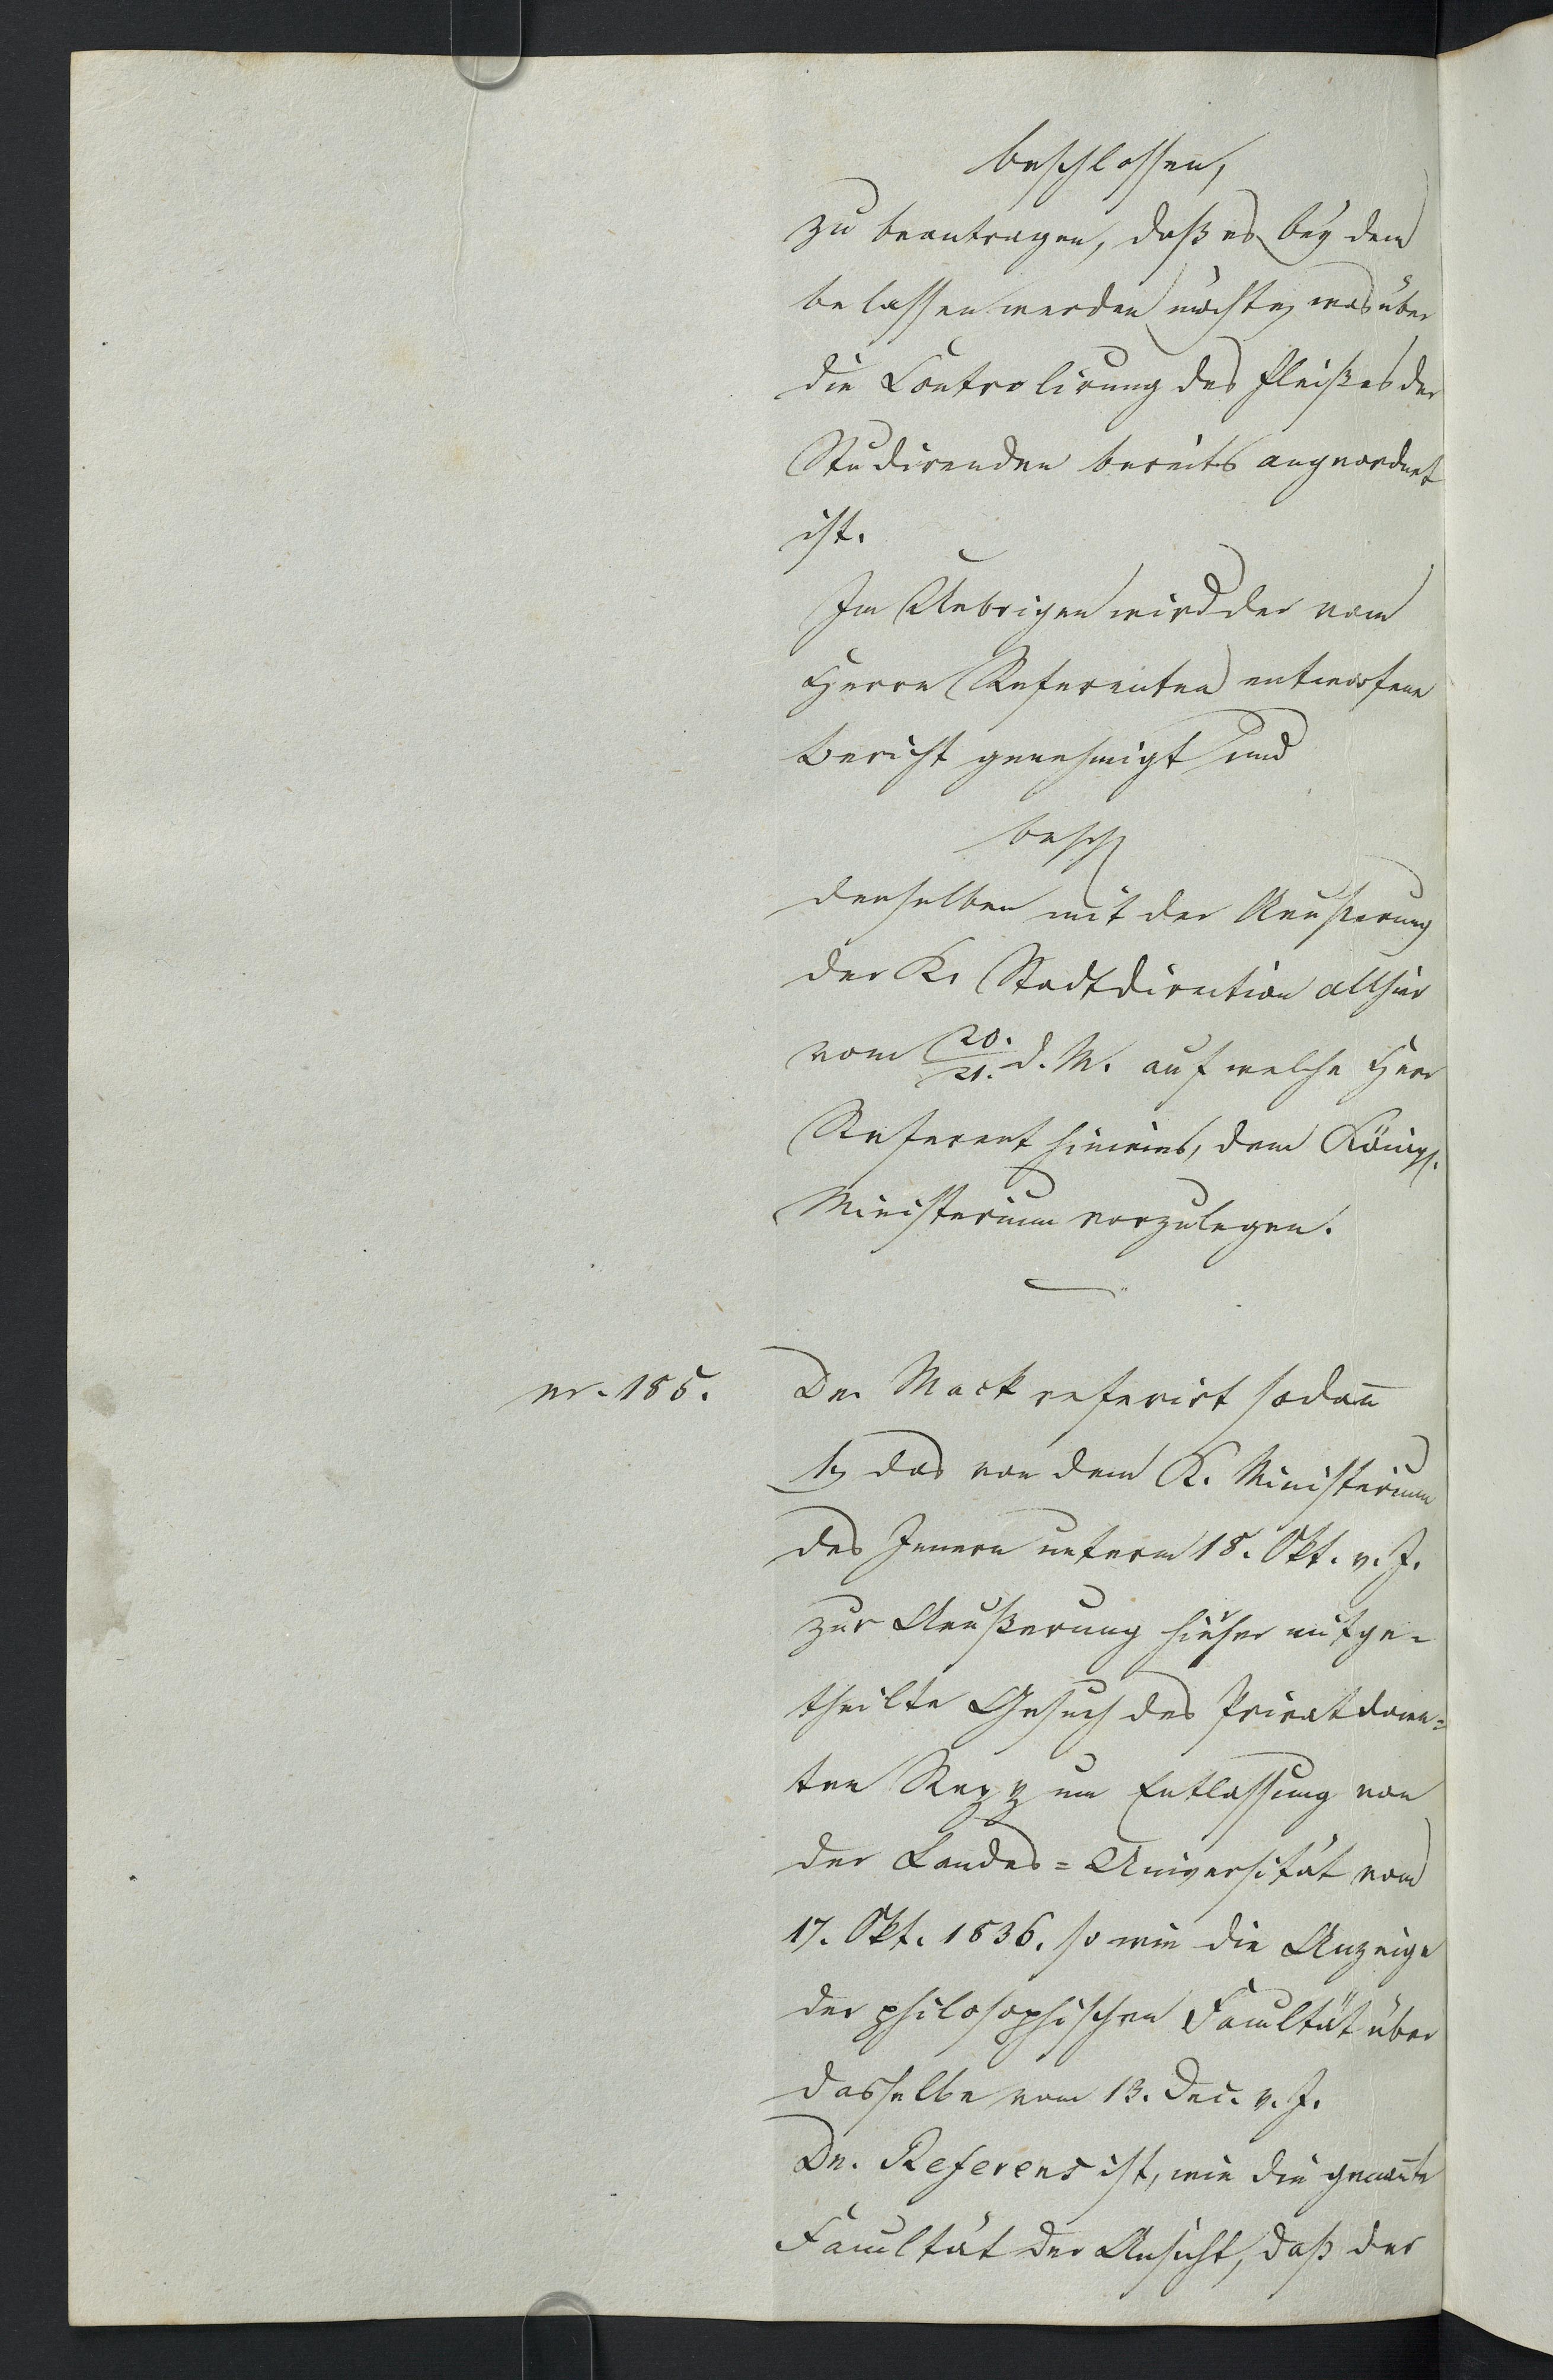 beschlossen,
zu beantragen, daß es bey dem
belassen werden möchte, was über
die Controlirung des Fleißes der
Studirenden bereits angeordnet
ist.
Im Uebrigen wird der vom
Herrn Referenten entworfene
Bericht genehmigt und
besch
denselben mit der Aeußerung
der K. Stadtdirection allhier
vom 20./21. d. M. auf welche Herr
Referent hinwies, dem Königl.
Ministerium vorzulegen.
nr. 185.
Dn. Mack referirt sodann
1, das von dem K. Ministerium
des Innern unterm 18. Okt. v. J.
zur Aeußerung hieher mitge-
theilte Gesuch des Privatdocen=
ten um Entlassung von
der Landes=Universität vom
17. Okt. 1836. so wie die Anzeige
der philosophischen Facultät über
dasselbe vom 13. Dec. v. J.
Dn. Referens ist, wie die genannte
Facultät der Ansicht, daß der